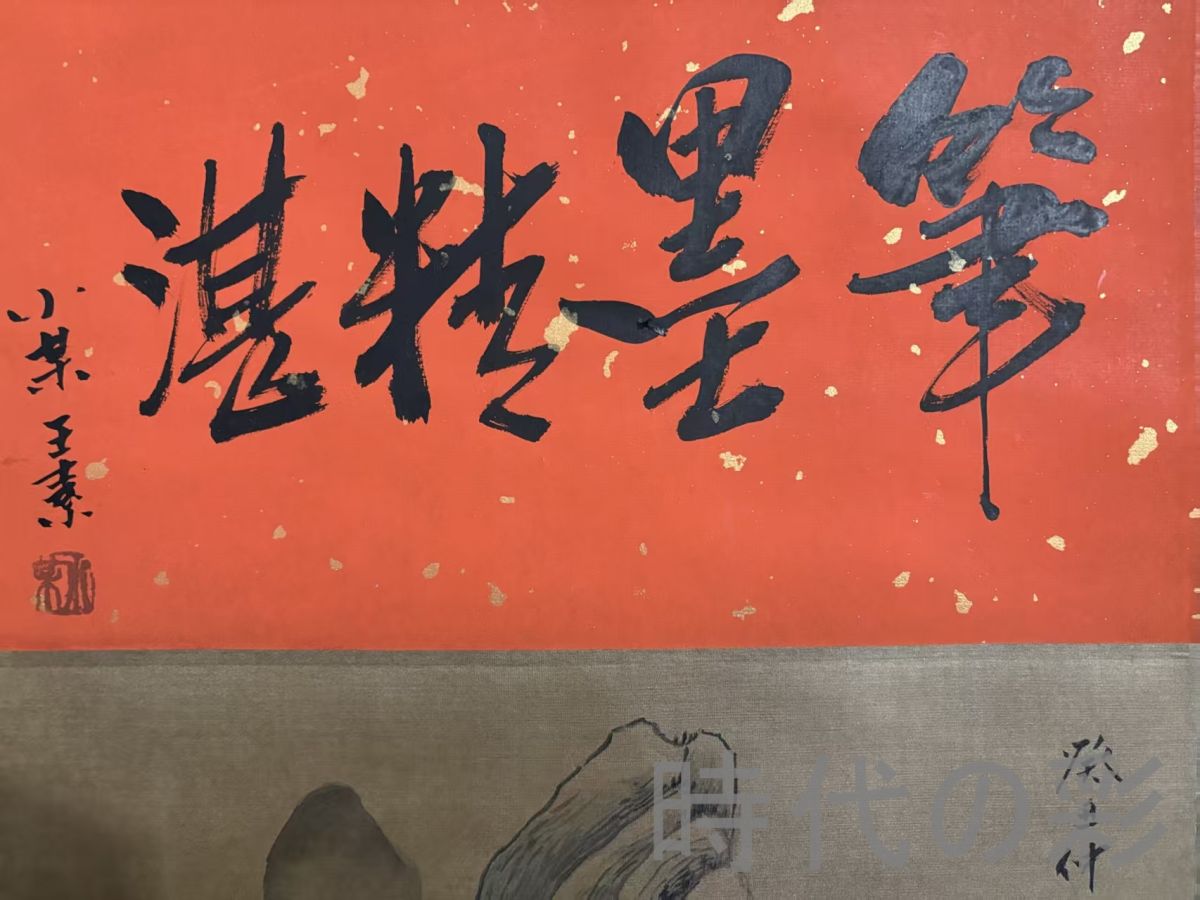 筆墨精湛
小某王素
時代の影